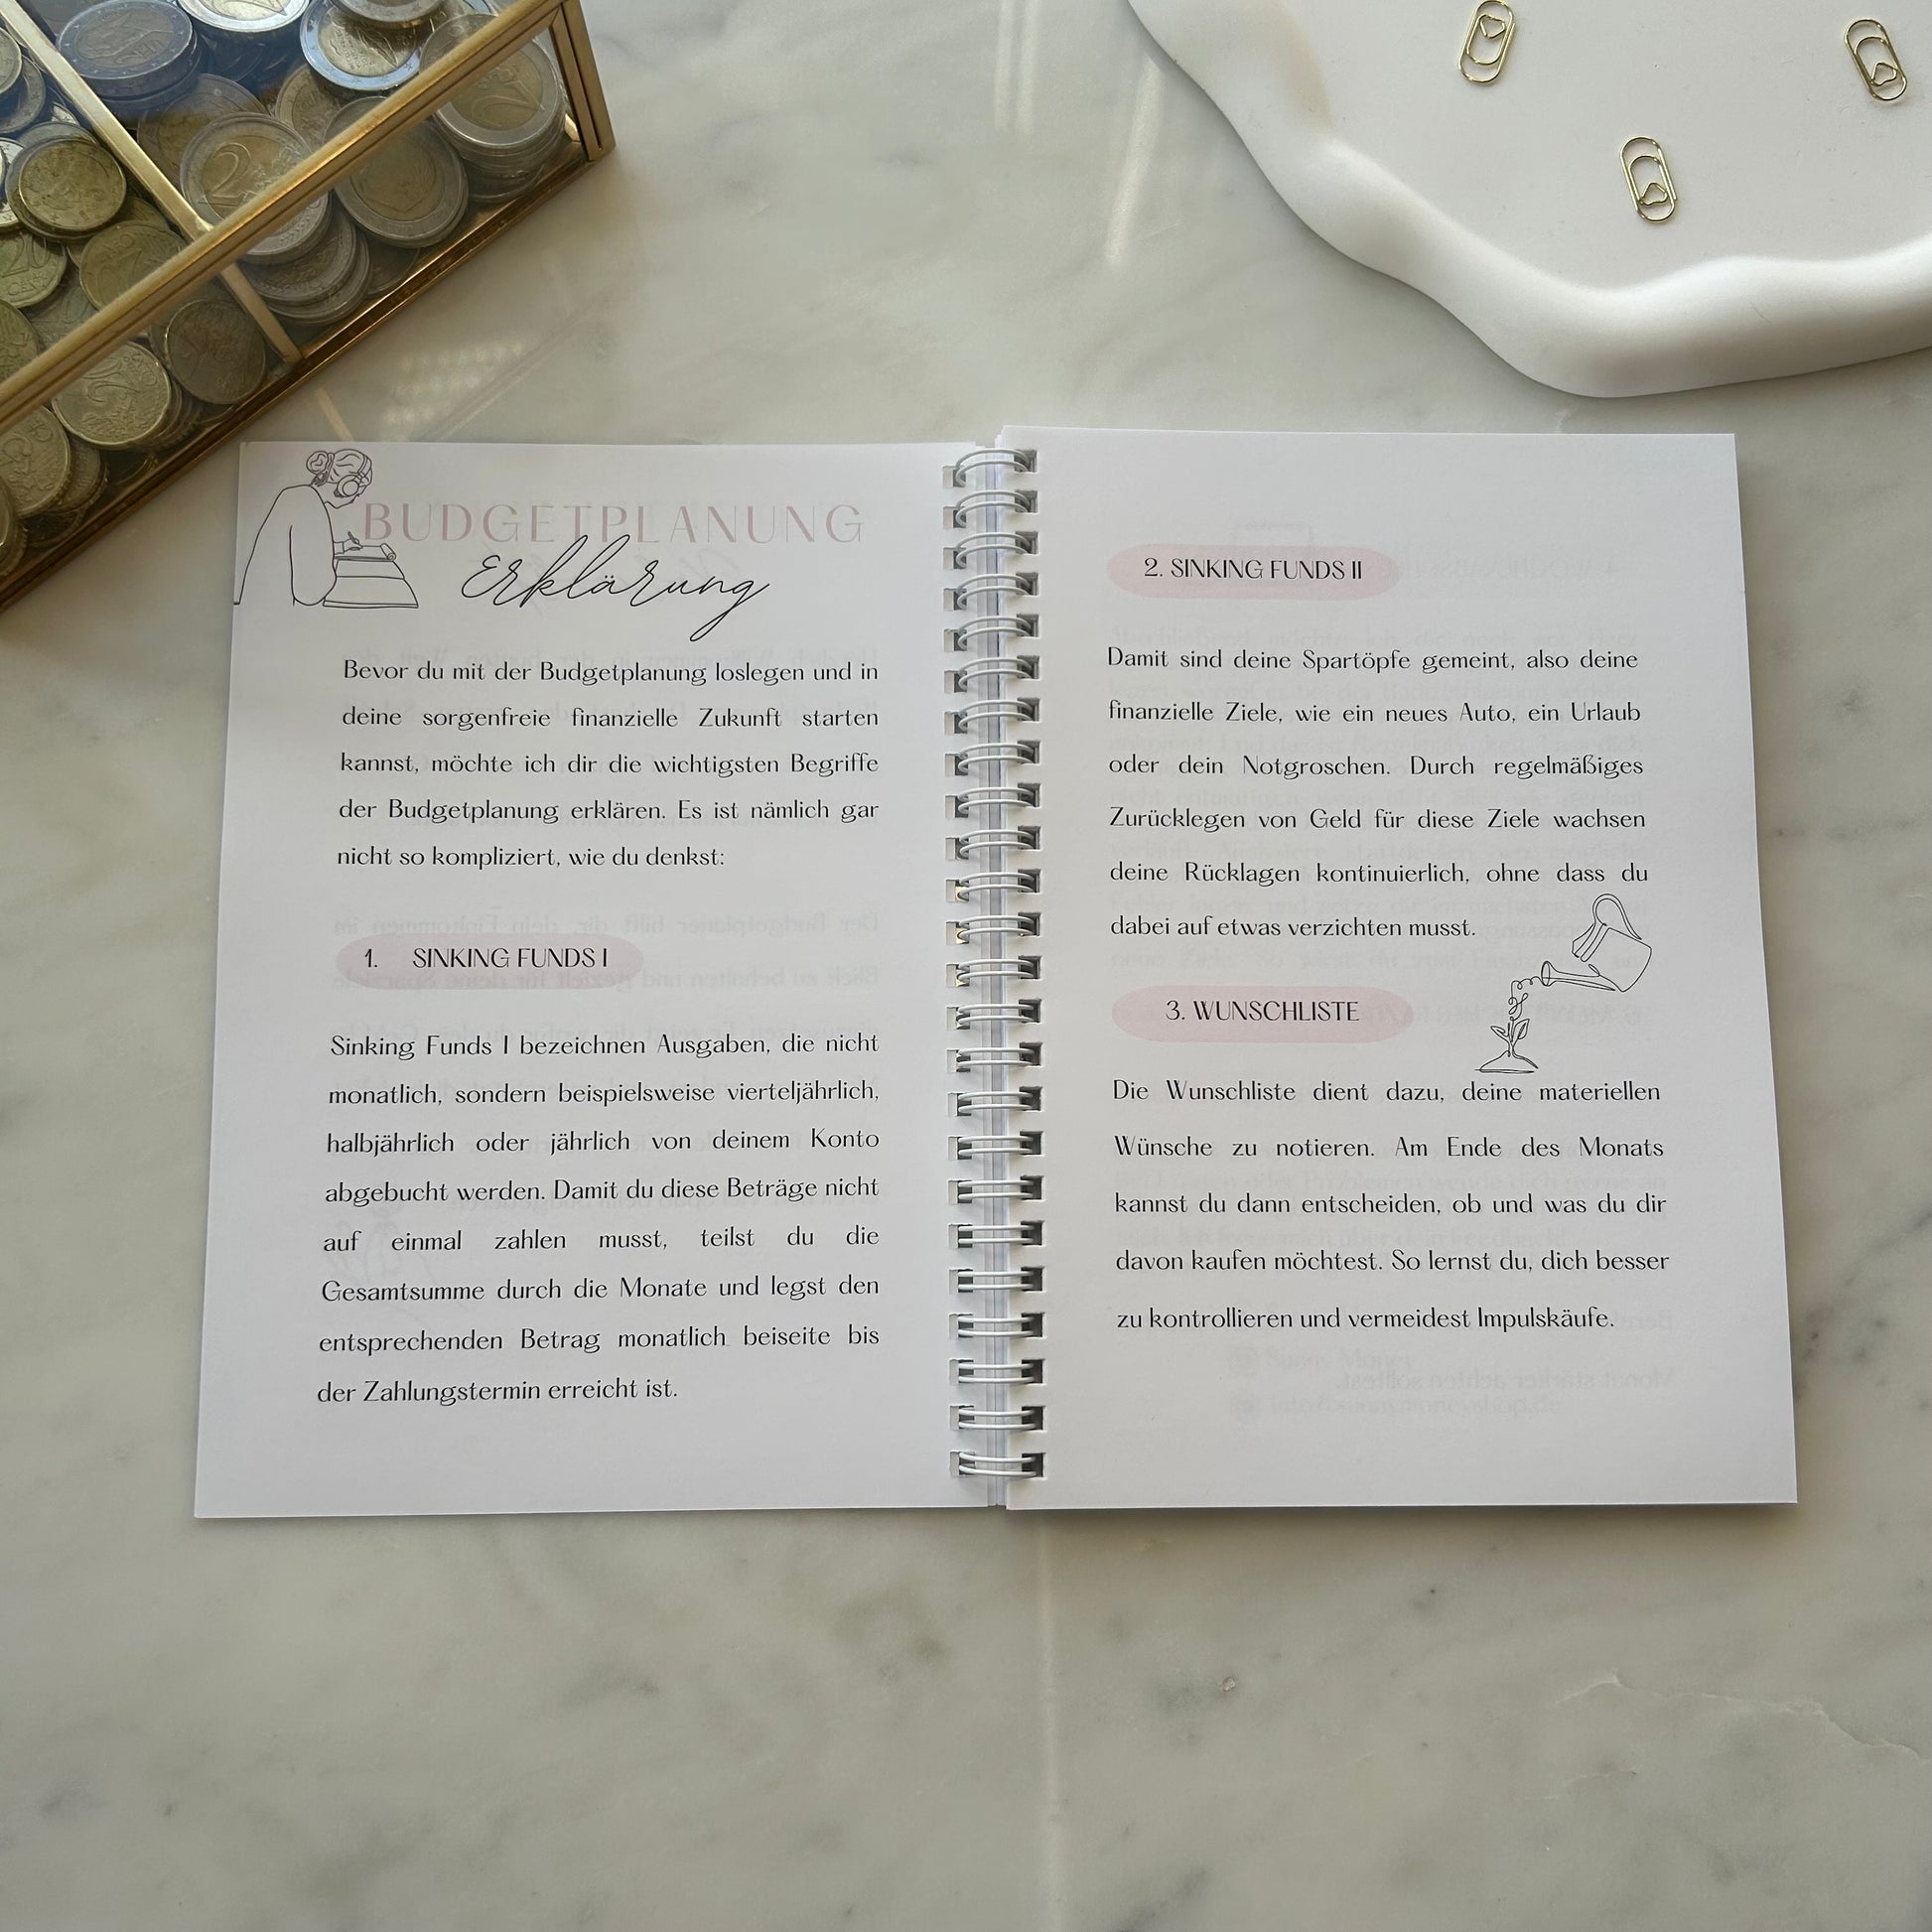 BUDGETPLANUNG
Erklärung
Bevor du mit der Budgetplanung loslegen und in
deine sorgenfreie finanzielle Zukunft starten
kannst, möchte ich dir die wichtigsten Begriffe
der Budgetplanung erklären. Es ist nämlich gar
nicht so kompliziert, wie du denkst:
1. SINKING FUNDS I
Sinking Funds I bezeichnen Ausgaben, die nicht
monatlich, sondern beispielsweise vierteljährlich,
halbjährlich oder jährlich von deinem Konto
abgebucht werden. Damit du diese Beträge nicht
auf einmal zahlen musst, teilst du die
Gesamtsumme durch die Monate und legst den
entsprechenden Betrag monatlich beiseite bis
der Zahlungstermin erreicht ist.
2. SINKING FUNDS II
Damit sind deine Spartöpfe gemeint, also deine
finanzielle Ziele, wie ein neues Auto, ein Urlaub
oder dein Notgroschen. Durch regelmäßiges
Zurücklegen von Geld für diese Ziele wachsen
deine Rücklagen kontinuierlich, ohne dass du
dabei auf etwas verzichten musst.
3. WUNSCHLISTE
Die Wunschliste dient dazu, deine materiellen
Wünsche zu notieren. Am Ende des Monats
kannst du dann entscheiden, ob und was du dir
davon kaufen möchtest. So lernst du, dich besser
zu kontrollieren und vermeidest Impulskäufe.